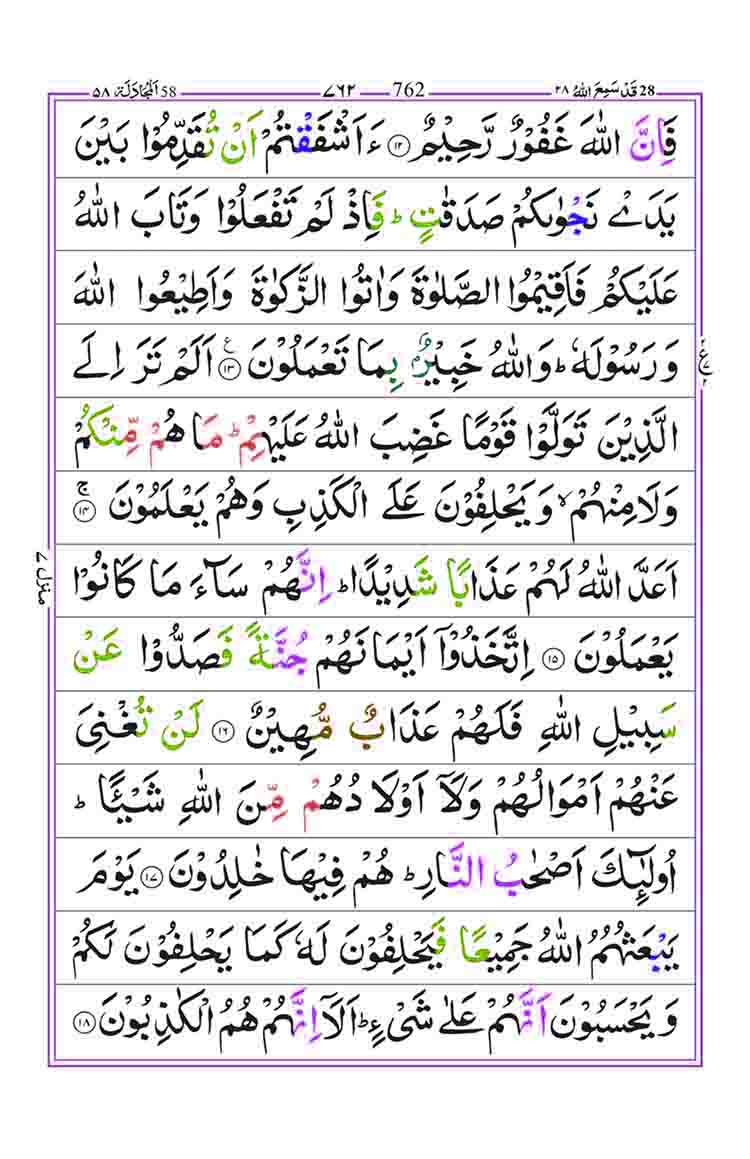 28 قَدْ سَمِعَ اللّٰهُ ٢٨ 762 ٧٦٢ 58 اَلْمُجَادَلَة ٥٨
فَاِنَّ اللّٰهَ غَفُوْرٌ رَّحِيْمٌ ۝١٢ ءَاَشْفَقْتُمْ اَنْ تُقَدِّمُوْا بَيْنَ
يَدَىْ نَجْوٰىكُمْ صَدَقٰتٍ ؕ فَاِذْ لَمْ تَفْعَلُوْا وَتَابَ اللّٰهُ
عَلَيْكُمْ فَاَقِيْمُوا الصَّلٰوةَ وَاٰتُوا الزَّكٰوةَ وَاَطِيْعُوا اللّٰهَ
وَرَسُوْلَهٗ ؕ وَاللّٰهُ خَبِيْرٌۢ بِمَا تَعْمَلُوْنَ ۝١٣ۧ اَلَمْ تَرَ اِلَى
الَّذِيْنَ تَوَلَّوْا قَوْمًا غَضِبَ اللّٰهُ عَلَيْهِمْ ؕ مَا هُمْ مِّنْكُمْ
وَلَا مِنْهُمْ ۙ وَيَحْلِفُوْنَ عَلَى الْكَذِبِ وَهُمْ يَعْلَمُوْنَ ۝١٤ۚ
اَعَدَّ اللّٰهُ لَهُمْ عَذَابًا شَدِيْدًا ؕ اِنَّهُمْ سَآءَ مَا كَانُوْا
يَعْمَلُوْنَ ۝١٥ اِتَّخَذُوْٓا اَيْمَانَهُمْ جُنَّةً فَصَدُّوْا عَنْ
سَبِيْلِ اللّٰهِ فَلَهُمْ عَذَابٌ مُّهِيْنٌ ۝١٦ لَنْ تُغْنِىَ
عَنْهُمْ اَمْوَالُهُمْ وَلَآ اَوْلَادُهُمْ مِّنَ اللّٰهِ شَيْـًٔا ؕ
اُولٰٓئِكَ اَصْحٰبُ النَّارِ ؕ هُمْ فِيْهَا خٰلِدُوْنَ ۝١٧ يَوْمَ
يَبْعَثُهُمُ اللّٰهُ جَمِيْعًا فَيَحْلِفُوْنَ لَهٗ كَمَا يَحْلِفُوْنَ لَكُمْ
وَيَحْسَبُوْنَ اَنَّهُمْ عَلٰى شَىْءٍ ؕ اَلَآ اِنَّهُمْ هُمُ الْكٰذِبُوْنَ ۝١٨
منزل ٧